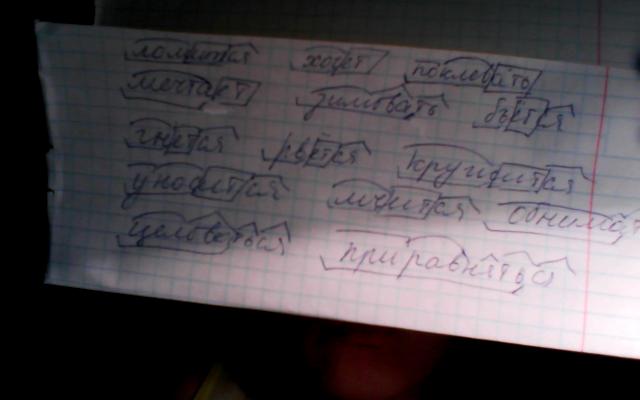 ломится хочет поклевать
мечтает зимовать бьётся
гнётся рвётся кружится
уносится мчится обнимает
целоваться приравняться